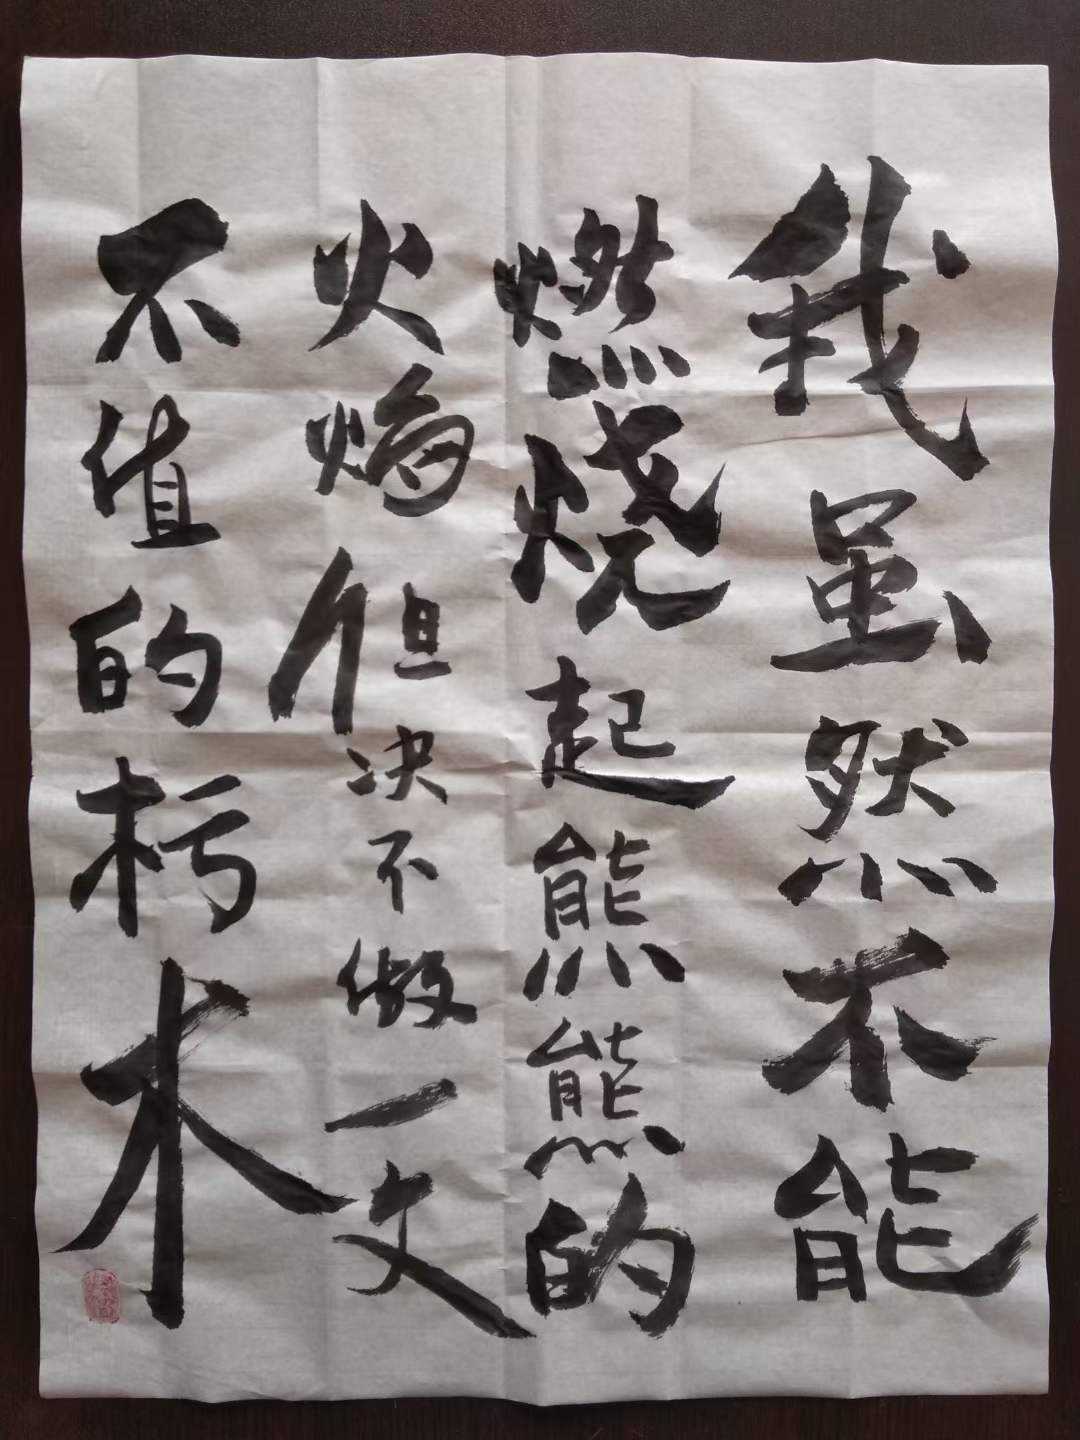 我虽然不能
燃烧起熊熊的
火焰但决不做一文
不值的朽木